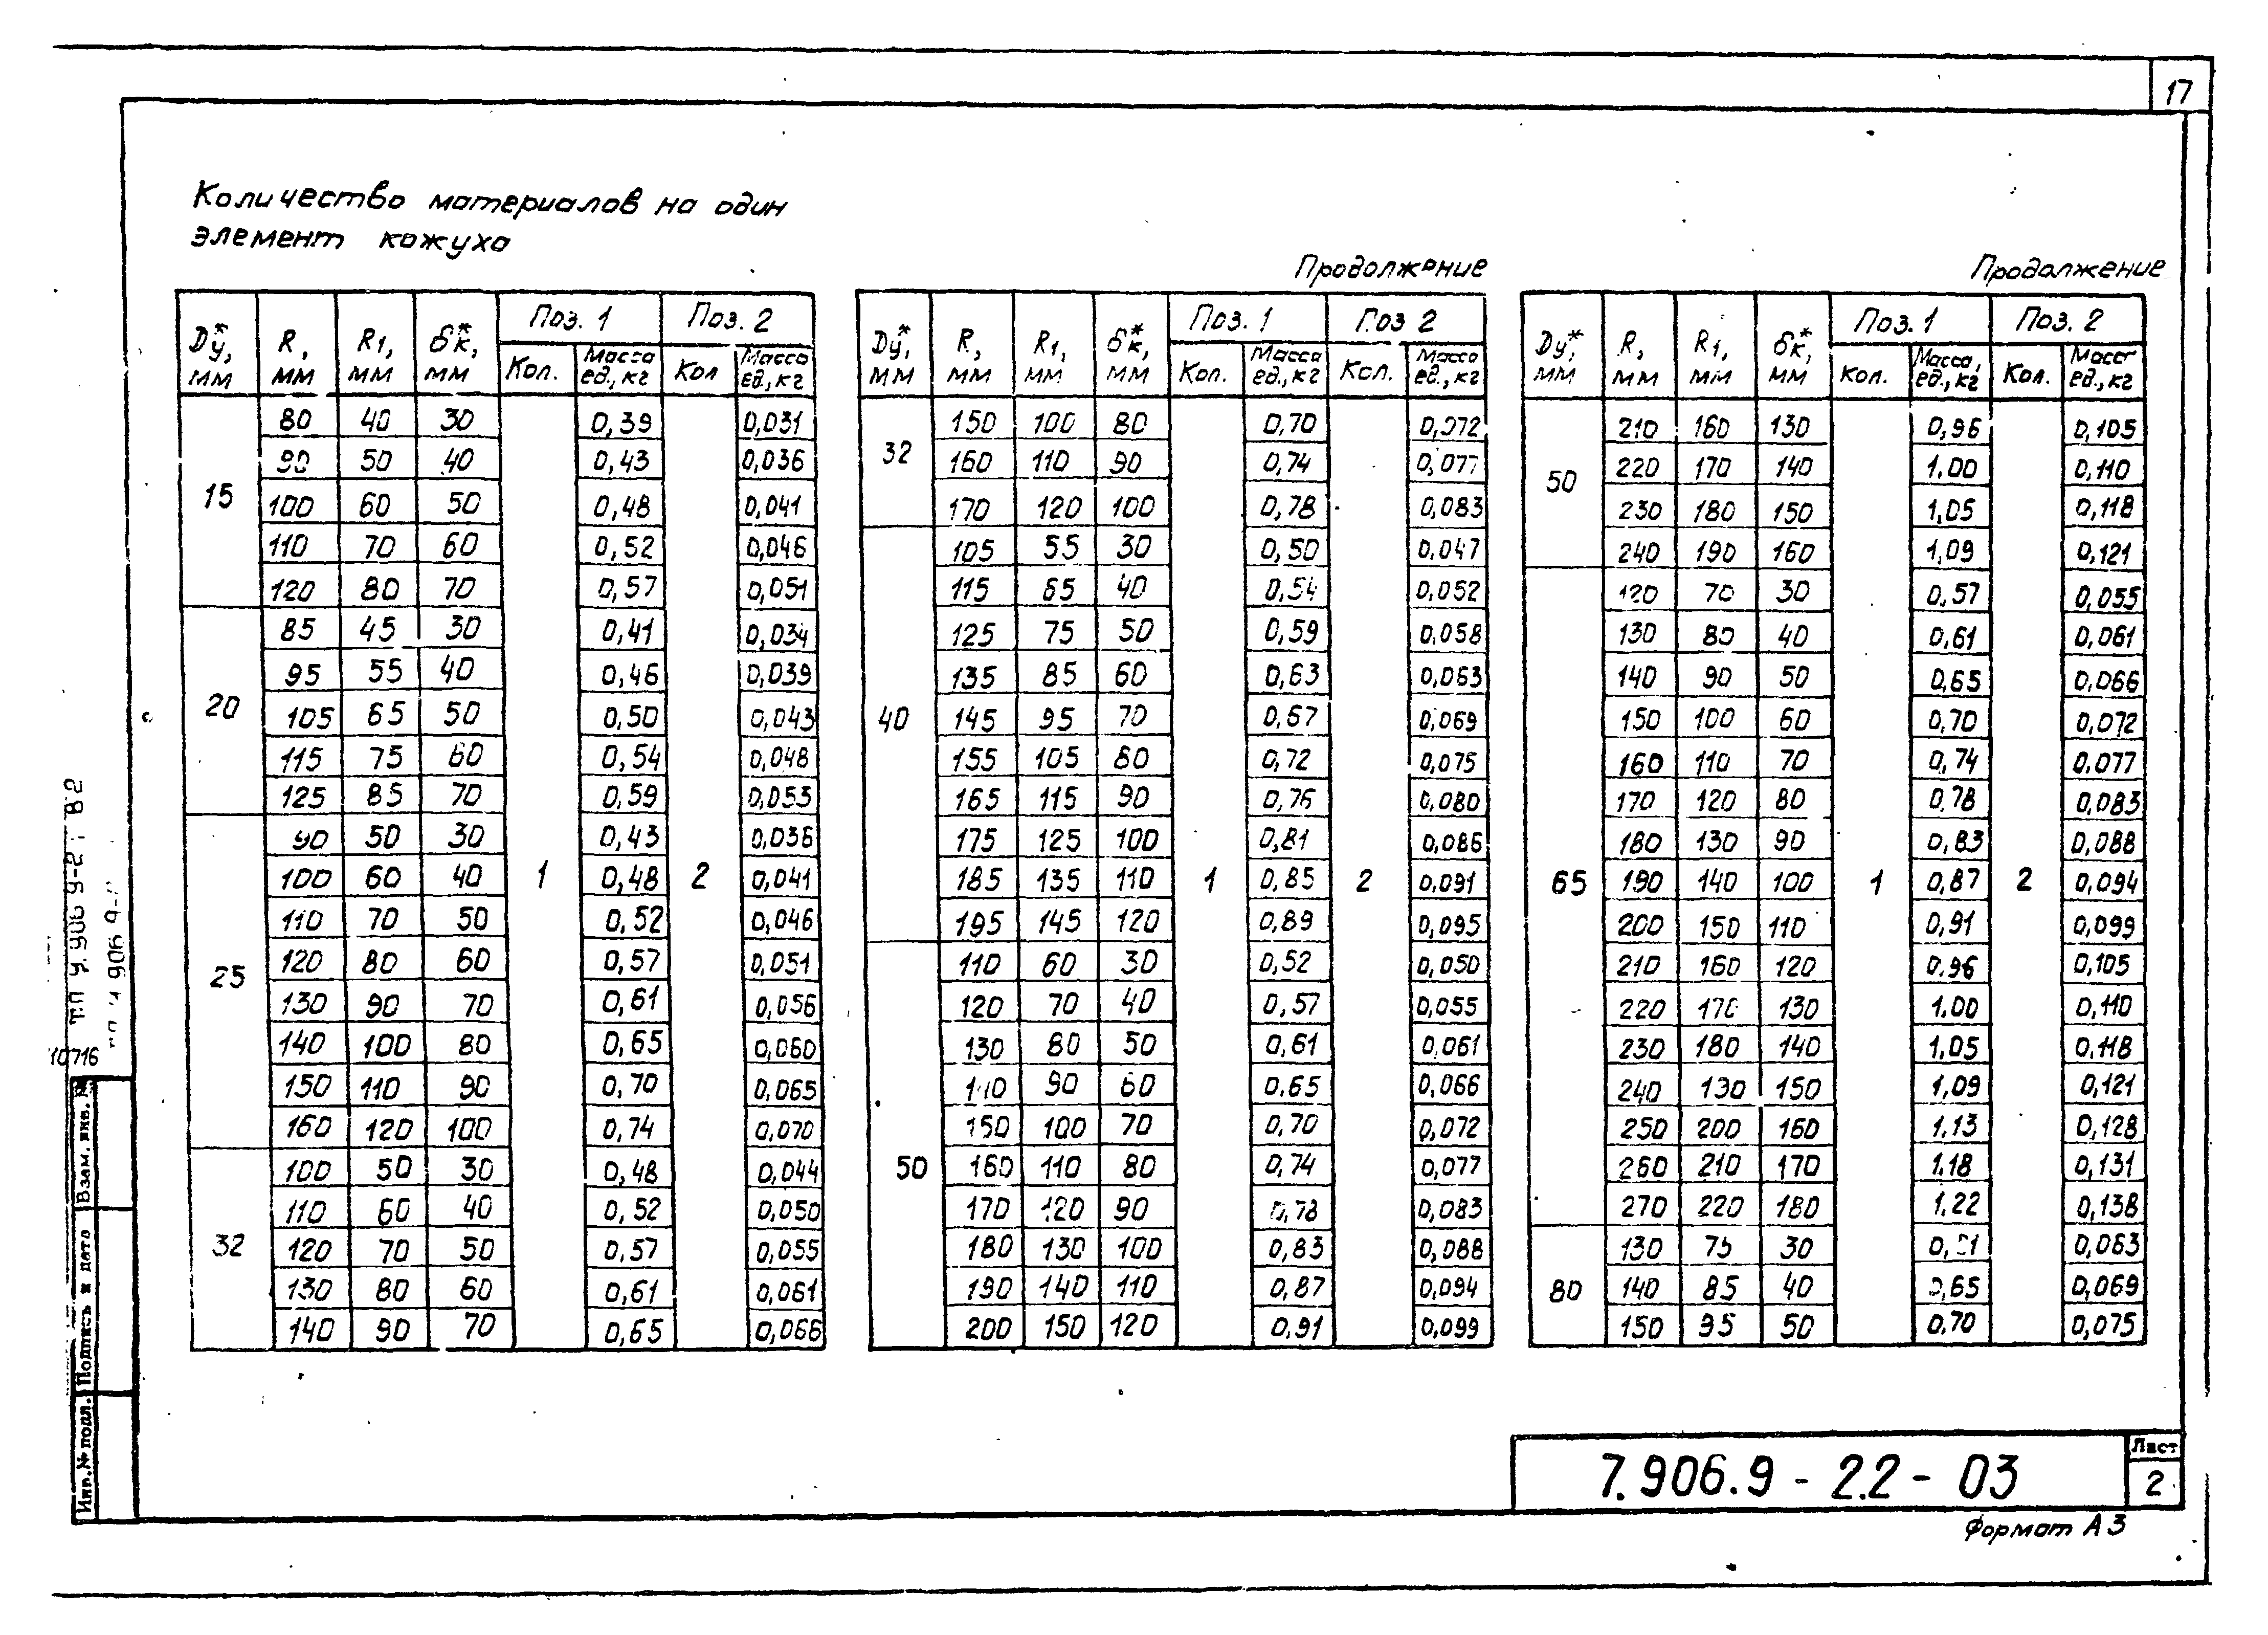 17
Количество материалов на один
элемент кожуха
Dу*, мм R, мм R1, мм бк*, мм Поз. 1 Поз. 2
Кол. Масса ед., кг Кол Масса ед., кг
15 80 40 30 1 0,39 2 0,031
90 50 40 0,43 0,036
100 60 50 0,48 0,041
110 70 60 0,52 0,046
120 80 70 0,57 0,051
20 85 45 30 0,41 0,034
95 55 40 0,46 0,039
105 65 50 0,50 0,043
115 75 60 0,54 0,048
125 85 70 0,59 0,053
25 90 50 30 0,43 0,036
100 60 40 0,48 0,041
110 70 50 0,52 0,046
120 80 60 0,57 0,051
130 90 70 0,61 0,056
140 100 80 0,65 0,060
150 110 90 0,70 0,065
160 120 100 0,74 0,070
32 100 50 30 0,48 0,044
110 60 40 0,52 0,050
120 70 50 0,57 0,055
130 80 60 0,61 0,061
140 90 70 0,65 0,066
Продолжение
Dу*, мм R, мм R1, мм бк*, мм Поз. 1 Поз 2
Кол. Масса ед., кг Кол. Масса ед., кг
32 150 100 80 1 0,70 2 0,072
160 110 90 0,74 0,077
170 120 100 0,78 0,083
40 105 55 30 0,50 0,047
115 65 40 0,54 0,052
125 75 50 0,59 0,058
135 85 60 0,63 0,063
145 95 70 0,67 0,069
155 105 80 0,72 0,075
165 115 90 0,76 0,080
175 125 100 0,81 0,086
185 135 110 0,85 0,091
195 145 120 0,89 0,095
50 110 60 30 0,52 0,050
120 70 40 0,57 0,055
130 80 50 0,61 0,061
140 90 60 0,65 0,066
150 100 70 0,70 0,072
160 110 80 0,74 0,077
170 120 90 0,78 0,083
180 130 100 0,83 0,088
190 140 110 0,87 0,094
200 150 120 0,91 0,099
Продолжение
Dу*, мм R, мм R1, мм бк*, мм Поз. 1 Поз. 2
Кол. Масса, ед., кг Кол. Масса ед., кг
50 210 160 130 1 0,96 2 0,105
220 170 140 1,00 0,110
230 180 150 1,05 0,118
240 190 160 1,09 0,121
65 120 70 30 0,57 0,055
130 80 40 0,61 0,061
140 90 50 0,65 0,066
150 100 60 0,70 0,072
160 110 70 0,74 0,077
170 120 80 0,78 0,083
180 130 90 0,83 0,088
190 140 100 0,87 0,094
200 150 110 0,91 0,099
210 160 120 0,96 0,105
220 170 130 1,00 0,110
230 180 140 1,05 0,118
240 130 150 1,09 0,121
250 200 160 1,13 0,128
260 210 170 1,18 0,131
270 220 180 1,22 0,138
80 130 75 30 0,063
140 85 40 0,65 0,069
150 95 50 0,70 0,075
10716
Инв.№ подл. Подпись и дата Взам. инв. №
7.906.9 - 2.2 - 03
Лист
2
Формат А3